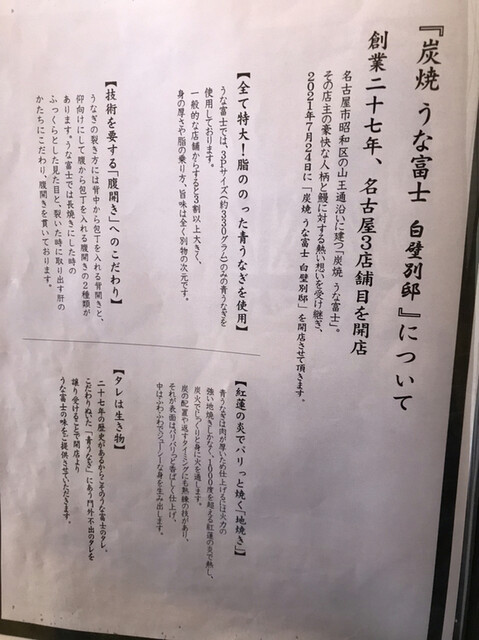 『炭焼 うな富士 白壁別邸』について
創業二十七年、名古屋3店舗目を開店
名古屋市昭和区の山王通沿いに建つ「炭焼 うな富士」。
その店主の豪快な人柄と鰻に対する熱い想いを受け継ぎ、
2021年7月24日に「炭焼 うな富士 白壁別邸」を開店させて頂きます。
【全て特大！脂ののった青うなぎを使用】
うな富士では、3Pサイズ(約330グラム)のみの青うなぎを
使用しております。
一般的な店舗からすると3割以上大きく、
身の厚さや脂の乗り方、旨味は全く別物の次元です。
【技術を要する「腹開き」へのこだわり】
うなぎの裂き方には背中から包丁を入れる背開きと、
仰向けにして腹から包丁を入れる腹開きの2種類が
あります。うな富士では長焼きにした時の
ふっくらとした見た目と、裂いた時に取り出す肝の
かたちにこだわり、腹開きを貫いております。
【紅蓮の炎でパリっと焼く「地焼き」】
青うなぎは肉が厚いため仕上げるには火力の
強い地焼きしかなく、1000度を超える紅蓮の炎で熱し、
炭火でじっくりと身に火を通します。
炭の配置や返すタイミングにも熟練の技があり、
それが表面はパリパリっと香ばしく仕上げ、
中はふわふわでジューシーな身を生み出します。
【タレは生き物】
二十七年の歴史があるからこそのうな富士のタレ。
こだわりぬいた「青うなぎ」にあう門外不出のタレを
譲り受けることで開店より
うな富士の味をご提供させていただきます。